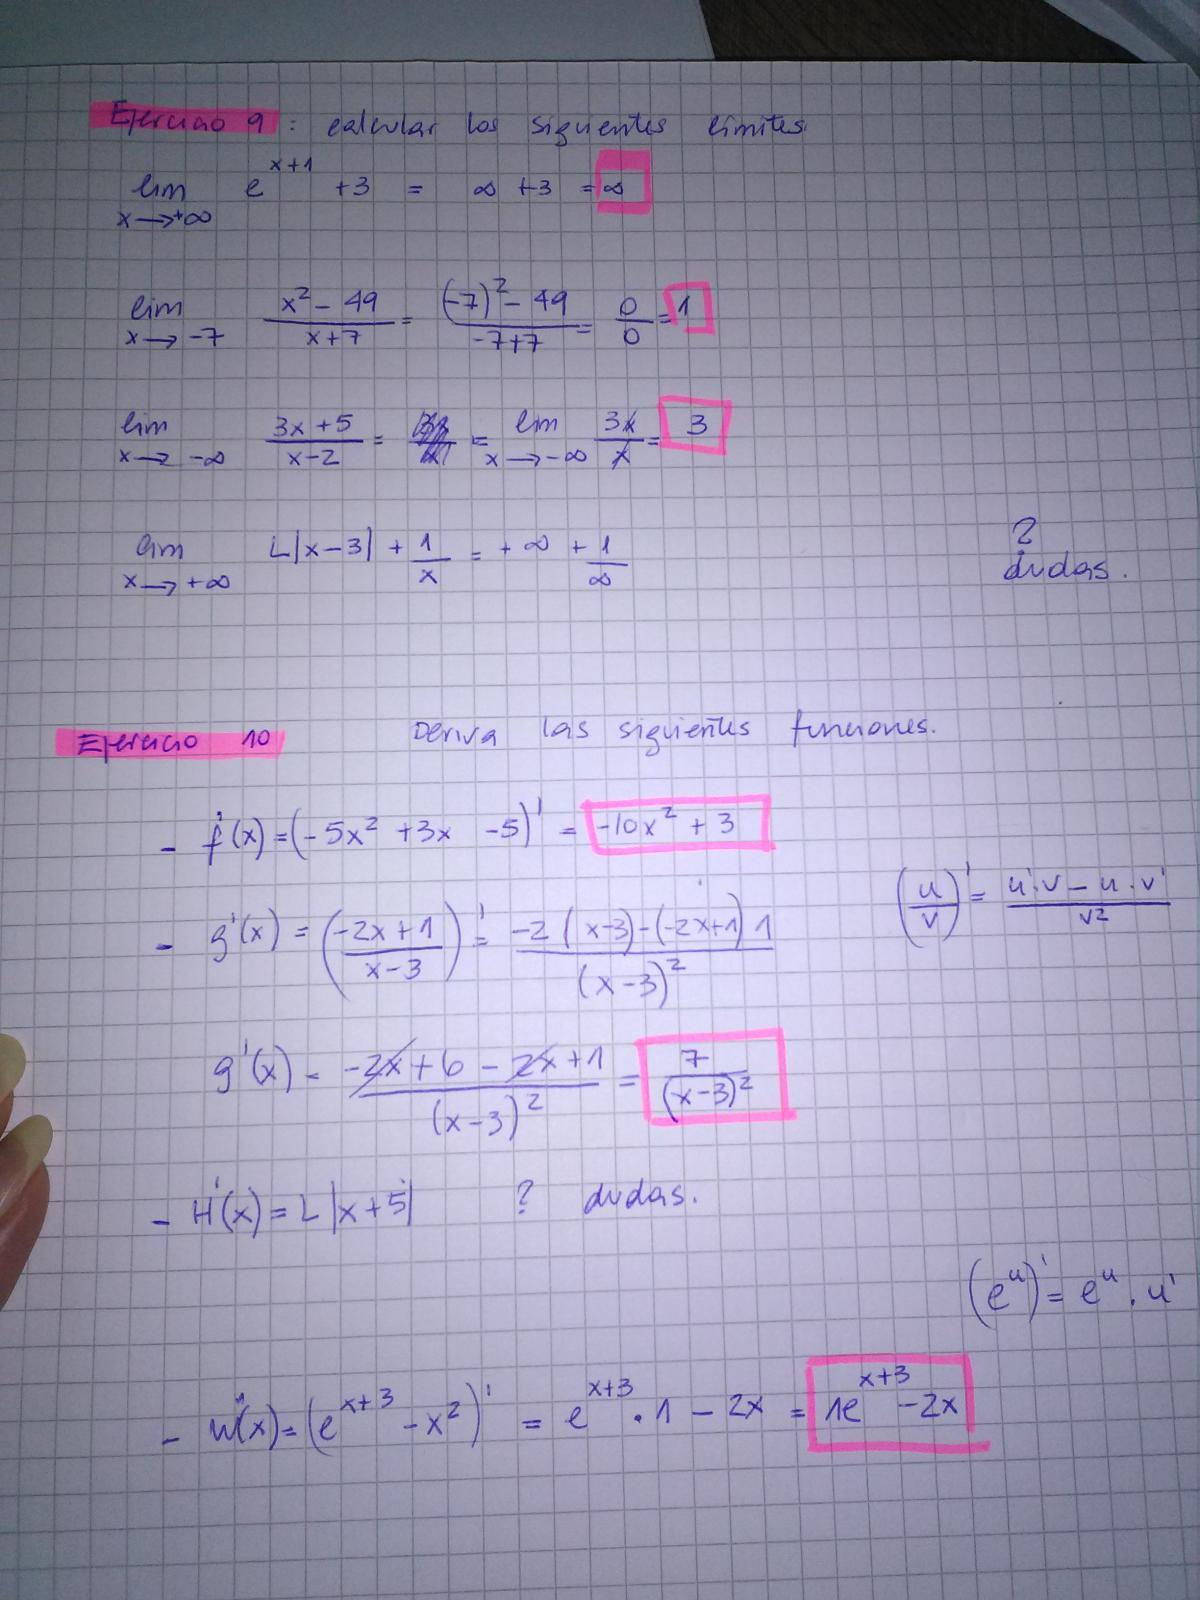 Ejercicio 9: calcular los siguientes límites.
lim x→+∞ e^(x+1) + 3 = ∞ + 3 = ∞
lim x→-7 (x² - 49)/(x+7) = ((-7)² - 49)/(-7+7) = 0/0 = 1
lim x→-∞ (3x+5)/(x-2) = = lim x→-∞ 3x/x = 3
lim x→+∞ L|x-3| + 1/x = +∞ + 1/∞ ? dudas.
Ejercicio 10 Deriva las siguientes funciones.
- f'(x) = (-5x² + 3x - 5)' = -10x² + 3
- g'(x) = ((-2x+1)/(x-3))' = (-2(x-3)-(-2x+1)1)/(x-3)² (u/v)' = (u'·v - u·v')/v²
g'(x) = (-2x+6-2x+1)/(x-3)² = 7/(x-3)²
- H'(x) = L|x+5| ? dudas.
(e^u)' = e^u · u'
- (x) = (e^(x+3) - x²)' = e^(x+3) · 1 - 2x = 1e^(x+3) - 2x